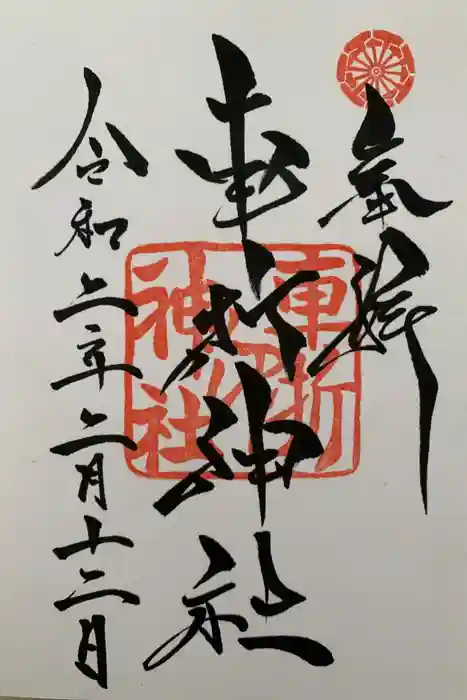 奉拝
車折神社
令和六年六月十二日
車折
神社